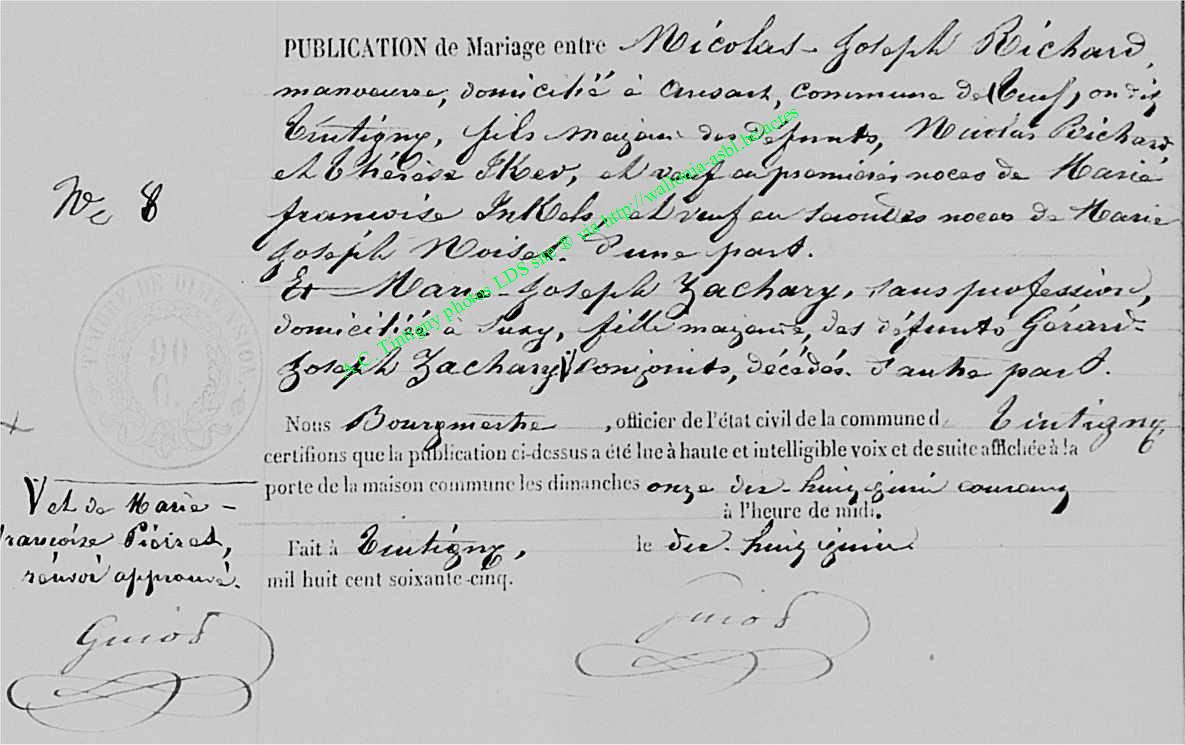 PUBLICATION de Mariage entre Nicolas-Joseph Richard,
manoeuvre, domicilié à Ansart, commune de (Cens), on dix
Tintigny, fils majeur des défunts, Nicolas Richard
et Thérèse et veuf en premières noces de Marie
françoise et veuf en secondes noces de Marie
Joseph Noiset. d'une part.
Et Marie-Joseph Zachary, sans profession,
domiciliée à fille majeure, des défunts Gérard-
Joseph Zachary V conjoints, décédés. d'autre part.
Nous Bourgmestre, officier de l'état civil de la commune d Tintigny,
certifions que la publication ci-dessus a été lue à haute et intelligible voix et de suite affichée à la
porte de la maison commune les dimanches onze dix-huit juin courant
à l'heure de midi.
Fait à Tintigny, le dix-huit juin
mil huit cent soixante-cinq.
Guiot
No 8
TIMBRE DE DIMENSION
90
C.
V et de Marie-
françoise
renvoi approuvé.
Guiot
A.C. Tintigny photos LDS sne ® via http://wallonia-asbl.be/actes